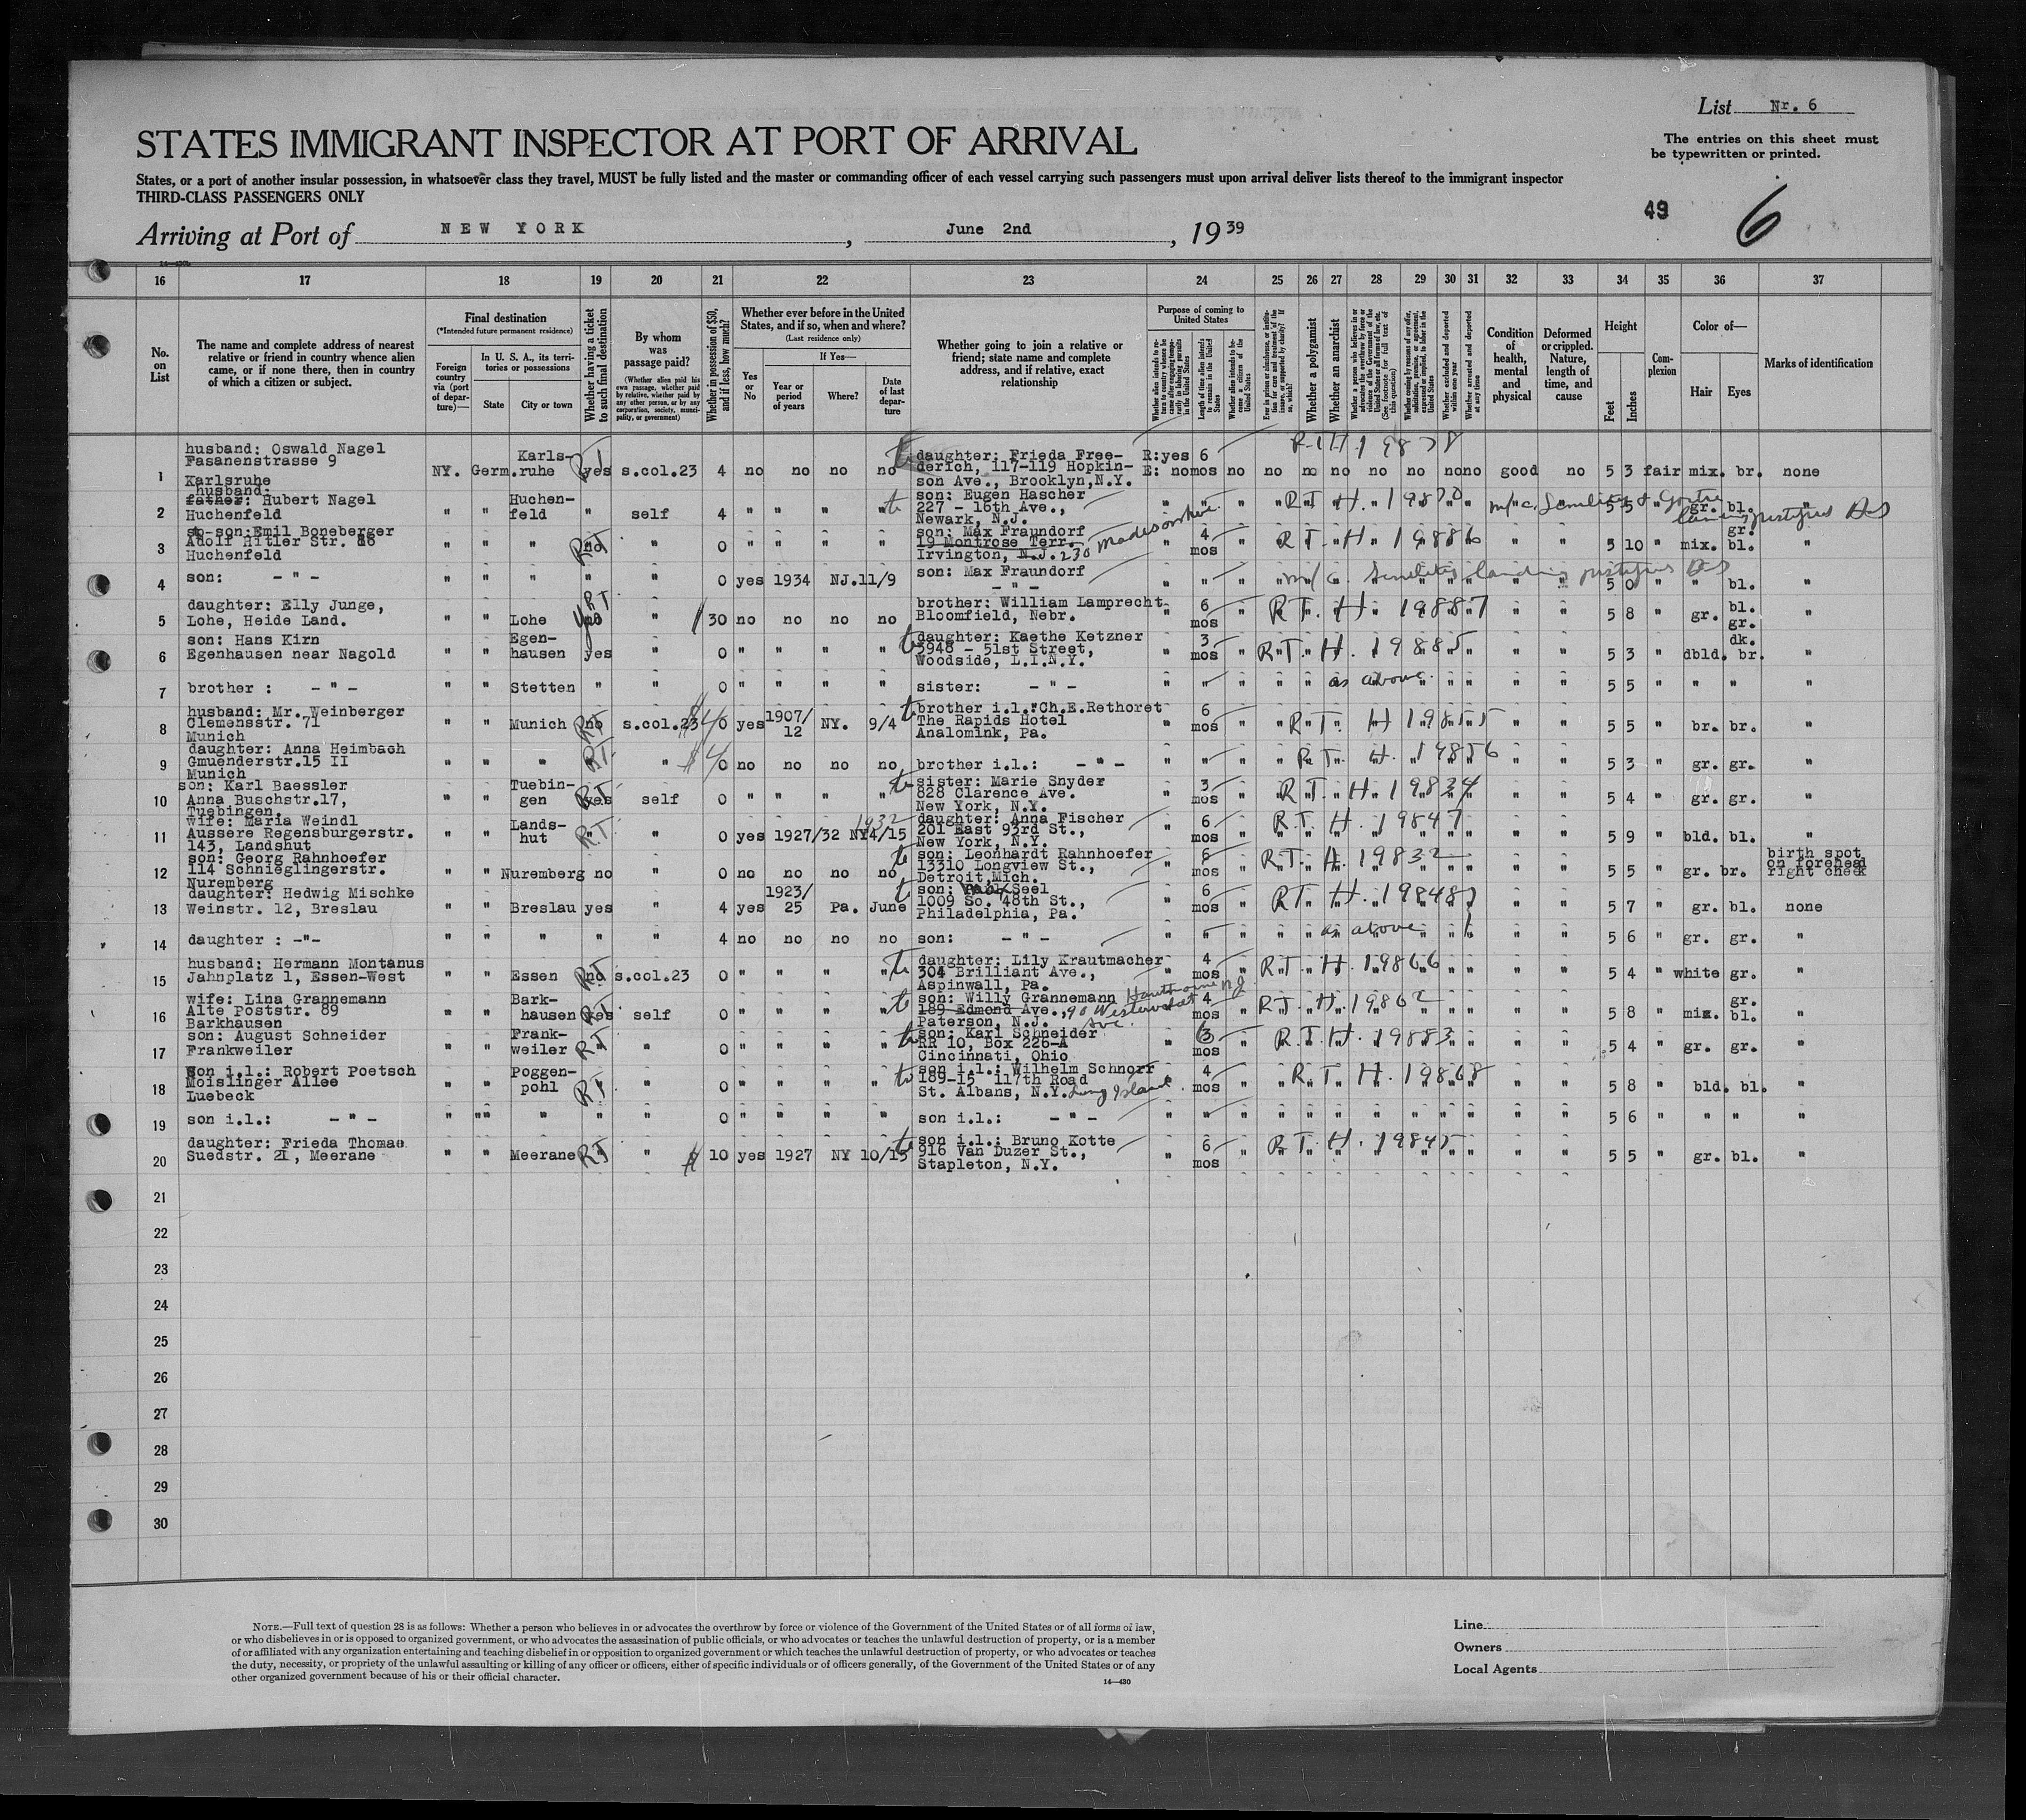 List Nr. 6
STATES IMMIGRANT INSPECTOR AT PORT OF ARRIVAL
The entries on this sheet must
be typewritten or printed.
States, or a port of another insular possession, in whatsoever class they travel, MUST be fully listed and the master or commanding officer of each vessel carrying such passengers must upon arrival deliver lists thereof to the immigrant inspector
THIRD-CLASS PASSENGERS ONLY
49 6
Arriving at Port of NEW YORK, June 2nd, 1939
16 17 18 19 20 21 22 23 24 25 26 27 28 29 30 31 32 33 34 35 36 37
No. on List
The name and complete address of nearest
relative or friend in country whence alien
came, or if none there, then in country
of which a citizen or subject.
Final destination
(*Intended future permanent residence)
Foreign country via (port of departure)—
In U. S. A., its territories or possessions
State City or town
Whether having a ticket to such final destination
By whom was passage paid?
(Whether alien paid his own passage, whether paid by relative, whether paid by any other person, or by any corporation, society, municipality, or government)
Whether in possession of $50, and if less, how much?
Whether ever before in the United States, and if so, when and where?
(Last residence only)
Yes or No
If Yes—
Year or period of years
Where?
Date of last departure
Whether going to join a relative or
friend; state name and complete
address, and if relative, exact
relationship
Purpose of coming to United States
Whether a polygamist
Whether an anarchist
Condition of health, mental and physical
Deformed or crippled. Nature, length of time, and cause
Height
Feet Inches
Complexion
Color of—
Hair Eyes
Marks of identification
1 husband: Oswald Nagel Fasanenstrasse 9 Karlsruhe NY. Germ. Karlsruhe yes s.col.23 4 no no no no daughter: Frieda Freederich, 117-119 Hopkinson Ave., Brooklyn,N.Y. R:yes E: no 6 mos no no no no no no no no good no 5 3 fair mix. br. none
R.T.H. 19878
2 husband: father: Hubert Nagel Huchenfeld " " Huchenfeld " self 4 " " " " son: Eugen Hascher 227 - 16th Ave., Newark, N.J. " " " 5 5 " gr. bl. "
R.T.H. 19870
3 st-son:Emil Boneberger Adolf Hitler Str. 86 Huchenfeld " " " no " 0 " " " " son: Max Fraundorf 19 Montrose Terr. Irvington, N.J. 230 Madison Ave. " 4 mos " 5 10 " mix. gr. bl. "
R.T.H. 19886
4 son: - " - " " " " " 0 yes 1934 NJ. 11/9 son: Max Fraundorf - " - " " " 5 0 " " bl. "
m/c. Senility landing justifies
5 daughter: Elly Junge, Lohe, Heide Land. " " Lohe yes " 30 no no no no brother: William Lamprecht Bloomfield, Nebr. " 6 mos " 5 8 " gr. bl. gr. "
R.T.H. 19887
6 son: Hans Kirn Egenhausen near Nagold " " Egenhausen yes " 0 " " " " daughter: Kaethe Ketzner 3948 - 51st Street, Woodside, L.I.N.Y. " 3 mos " 5 3 " dbld. dk. br. "
R.T.H. 19885
7 brother : - " - " " Stetten " " 0 " " " " sister: - " - " " " as above 5 5 " " " "
8 husband: Mr. Weinberger Clemensstr. 71 Munich " " Munich no s.col.23 $40 yes 1907/12 NY. 9/4 brother i.l.:Ch.E.Rethoret The Rapids Hotel Analomink, Pa. " 6 mos " 5 5 " br. br. "
R.T. H 19855
9 daughter: Anna Heimbach Gmuenderstr.15 II Munich " " " " " $40 no no no no brother i.l.: - " - " " " 5 3 " gr. gr. "
R.T. H. 19856
10 son: Karl Baessler Anna Buschstr.17, Tuebingen, " " Tuebingen yes self 0 " " " " sister: Marie Snyder 828 Clarence Ave. New York, N.Y. " 3 mos " 5 4 " gr. gr. "
R.T.H. 19834
11 wife: Maria Weindl Aussere Regensburgerstr. 143, Landshut " " Landshut " " 0 yes 1927/32 NY 4/15 1932 daughter: Anna Fischer 201 East 93rd St., New York, N.Y. " 6 mos " 5 9 " bld. bl. "
R.T.H. 19847
12 son: Georg Rahnhoefer 114 Schnieglingerstr. Nuremberg " " Nuremberg no " 0 no no no no son: Leonhardt Rahnhoefer 13310 Longview St., Detroit,Mich. " 6 mos " 5 5 " gr. br. birth spot on forehead right cheek
R.T.H. 19832
13 daughter: Hedwig Mischke Weinstr. 12, Breslau " " Breslau yes " 4 yes 1923/25 Pa. June son: Seel 1009 So. 48th St., Philadelphia, Pa. " 6 mos " 5 7 " gr. bl. none
R.T.H. 19848
14 daughter : -"- " " " " " 4 no no no no son: - " - " " " as above 5 6 " gr. gr. "
15 husband: Hermann Montanus Jahnplatz 1, Essen-West " " Essen no s.col.23 0 " " " " daughter: Lily Krautmacher 304 Brilliant Ave., Aspinwall, Pa. " 4 mos " 5 4 " white gr. "
R.T. H. 19866
16 wife: Lina Grannemann Alte Poststr. 89 Barkhausen " " Barkhausen yes self 0 " " " " son: Willy Grannemann 189 Edmond Ave., Paterson, N.J. Hawthorne NJ 90 Westervelt Ave. " 4 mos " 5 8 " mix. gr. bl. "
R.T.H. 19862
17 son: August Schneider Frankweiler " " Frankweiler " " 0 " " " " son: Karl Schneider RR 10, Box 226-A Cincinnati, Ohio " 6 mos " 5 4 " gr. gr. "
R.T.H. 19883
18 Son i.l.: Robert Poetsch Moislinger Allee Luebeck " " Poggenpohl " " 0 " " " " son i.l.: Wilhelm Schnorr 189-15 117th Road St. Albans, N.Y. Long Island " 4 mos " 5 8 " bld. bl. "
R.T. H. 19868
19 son i.l.: - " - " "" " " " 0 " " " " son i.l.: - " - " " " 5 6 " " " "
20 daughter: Frieda Thomae Suedstr. 21, Meerane " " Meerane " " $ 10 yes 1927 NY 10/15 son i.l.: Bruno Kotte 916 Van Duzer St., Stapleton, N.Y. " 6 mos " 5 5 " gr. bl. "
R.T.H. 19845
21
22
23
24
25
26
27
28
29
30
NOTE.—Full text of question 28 is as follows: Whether a person who believes in or advocates the overthrow by force or violence of the Government of the United States or of all forms of law,
or who disbelieves in or is opposed to organized government, or who advocates the assassination of public officials, or who advocates or teaches the unlawful destruction of property, or is a member
of or affiliated with any organization entertaining and teaching disbelief in or opposition to organized government or which teaches the unlawful destruction of property, or who advocates or teaches
the duty, necessity, or propriety of the unlawful assaulting or killing of any officer or officers, either of specific individuals or of officers generally, of the Government of the United States or of any
other organized government because of his or their official character.
14—430
Line
Owners
Local Agents